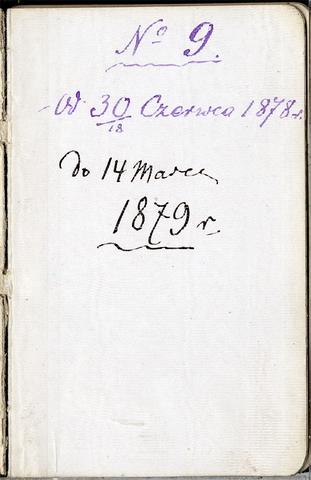 № 9.
Od 30/18 Czerwca 1878 r.
Do 14 Marca
1879 r.